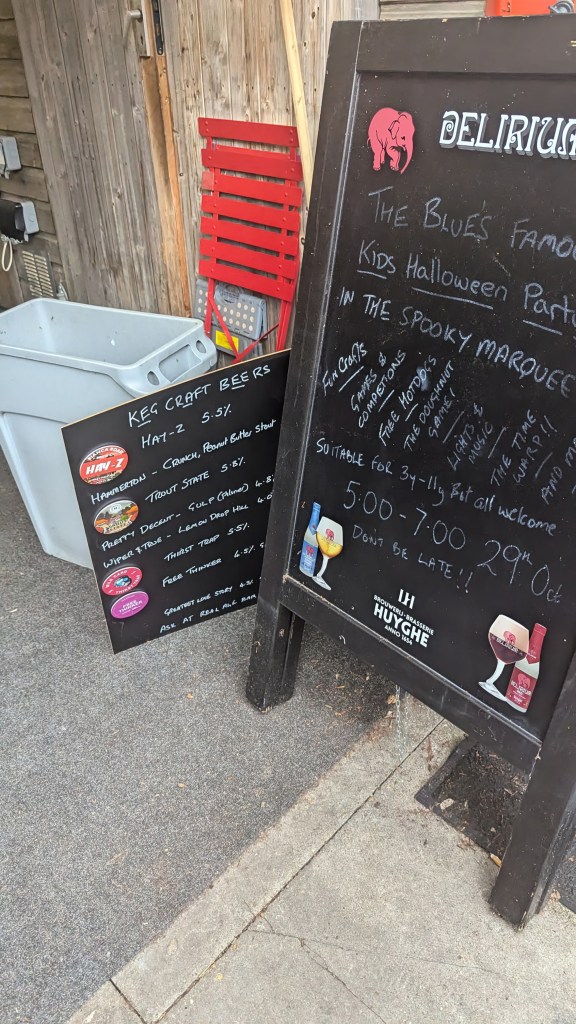 KEG CRAFT BEERS
HAY-Z 5.5%
HAY-Z
HAMMERTON - CRUNCH, PEANUT BUTTER STOUT
TROUT STATE 5.8%
PRETTY DECENT - GULP (PALOMA) 4.8%
WIPER & TRUE - LEMON DROP HILL 4.0
THIRST TRAP 5.5%
FREE THINKER 4.5%
FREE THINKER
GREATEST LOVE STORY 4.5%
ASK AT REAL ALE BAR
DELIRIUM
THE BLUES FAMOU
KIDS HALLOWEEN PARTY
IN THE SPOOKY MARQUEE
FUN CRAFTS
GAMES &
COMPETIONS
FREE HOTDOGS
THE DOUGHNUT
GAME!
&
MUSIC
THE TIME
WARP!!
AND M
SUITABLE FOR 3y-11y But all welcome
5:00 - 7:00 29th Oct
DONT BE LATE!!
BROUWERIJ-BRASSERIE
HUYGHE
ANNO 1654